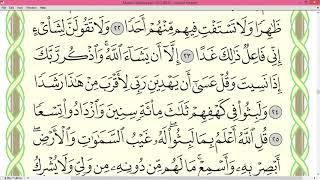 ظَهِرًا وَلَا تَسْتَفْتِ فِيهِم مِّنْهُمْ أَحَدًا ٢٢ وَلَا تَقُولَنَّ لِشَا۟ىْءٍ
إِنِّى فَاعِلٌ ذَٰلِكَ غَدًا ٢٣ إِلَّآ أَن يَشَآءَ ٱللَّهُ وَٱذْكُر رَّبَّكَ
إِذَا نَسِيتَ وَقُلْ عَسَىٰٓ أَن يَهْدِيَنِ رَبِّى لِأَقْرَبَ مِنْ هَٰذَا رَشَدًا
٢٤ وَلَبِثُوا۟ فِى كَهْفِهِمْ ثَلَٰثَ مِا۟ئَةٍ سِنِينَ وَٱزْدَادُوا۟ تِسْعًا
٢٥ قُلِ ٱللَّهُ أَعْلَمُ بِمَا لَبِثُوا۟ لَهُۥ غَيْبُ ٱلسَّمَٰوَٰتِ وَٱلْأَرْضِ
أَبْصِرْ بِهِۦ وَأَسْمِعْ مَا لَهُم مِّن دُونِهِۦ مِن وَلِىٍّ وَلَا يُشْرِكُ